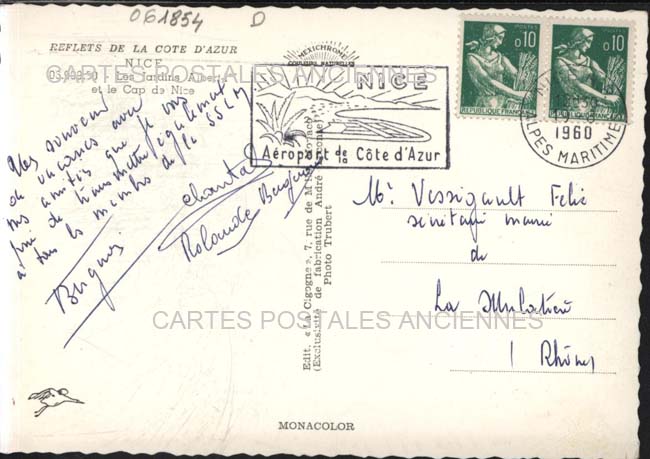 061854 D
REFLETS DE LA COTE D'AZUR
NICE
Les Jardins Albert
et le Cap de Nice
CARTES POSTALES ANCIENNES
MEXICHROME
COULEURS NATURELLES
NICE
Aéroport de la Côte d'Azur
0,10
REPUBLIQUE FRANÇAISE
0,10
1960
ALPES MARITIMES
souvenir
de vacances avec
mes amitiés que je vous
prie de transmettre également
à tous les membres de la SSLM
Chantal
Rolande
Mr Vessigault Felix
secrétaire mairie
de
La Mulatière
Rhône
Edit. « La Cigogne », 7, rue de
(Exclusivité de fabrication André
Photo Trubert
CARTES POSTALES ANCIENNES
MONACOLOR